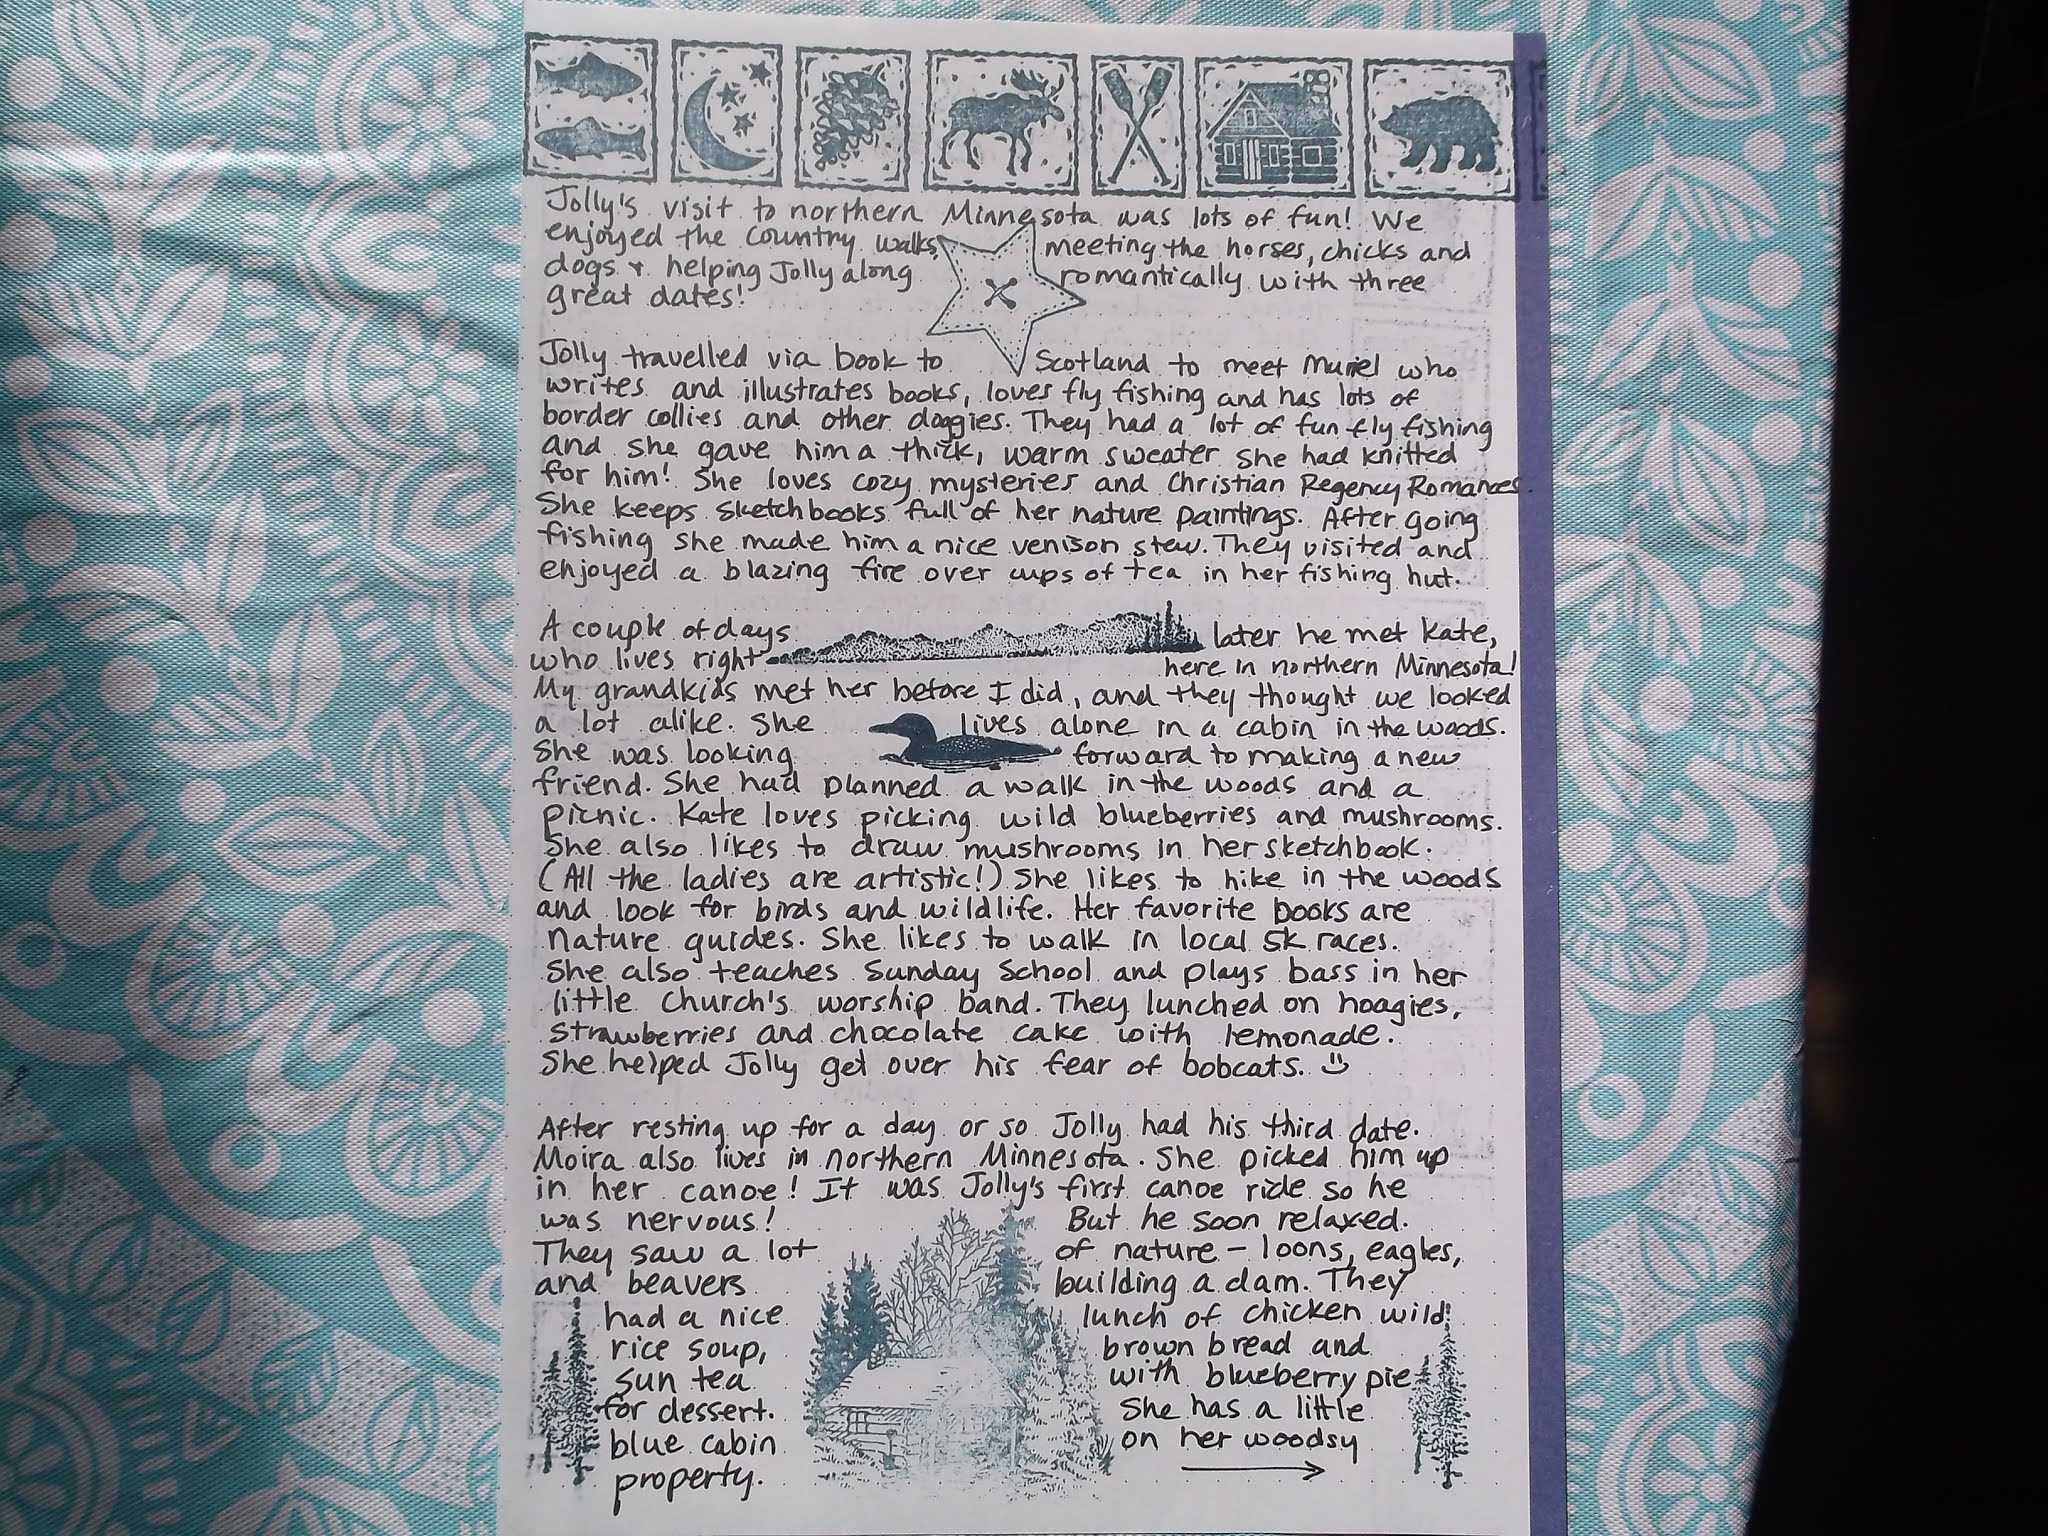 Jolly's visit to northern Minnesota was lots of fun! We
enjoyed the country walks, meeting the horses, chicks and
dogs & helping Jolly along romantically with three
great dates!
Jolly travelled via book to Scotland to meet Muriel who
writes and illustrates books, loves fly fishing and has lots of
border collies and other doggies. They had a lot of fun fly fishing
and she gave him a thick, warm sweater she had knitted
for him! She loves cozy mysteries and Christian Regency Romances.
She keeps sketchbooks full of her nature paintings. After going
fishing she made him a nice venison stew. They visited and
enjoyed a blazing fire over cups of tea in her fishing hut.
A couple of days later he met Kate,
who lives right here in northern Minnesota!
My grandkids met her before I did, and they thought we looked
a lot alike. She lives alone in a cabin in the woods.
She was looking forward to making a new
friend. She had planned a walk in the woods and a
picnic. Kate loves picking wild blueberries and mushrooms.
She also likes to draw mushrooms in her sketchbook.
(All the ladies are artistic!) She likes to hike in the woods
and look for birds and wildlife. Her favorite books are
nature guides. She likes to walk in local 5k races.
She also teaches Sunday School and plays bass in her
little church's worship band. They lunched on hoagies,
strawberries and chocolate cake with lemonade.
She helped Jolly get over his fear of bobcats. :)
After resting up for a day or so Jolly had his third date.
Moira also lives in northern Minnesota. She picked him up
in her canoe! It was Jolly's first canoe ride so he
was nervous! But he soon relaxed.
They saw a lot of nature – loons, eagles,
and beavers building a dam. They
had a nice lunch of chicken wild
rice soup, brown bread and
sun tea with blueberry pie
for dessert. She has a little
blue cabin on her woodsy
property.